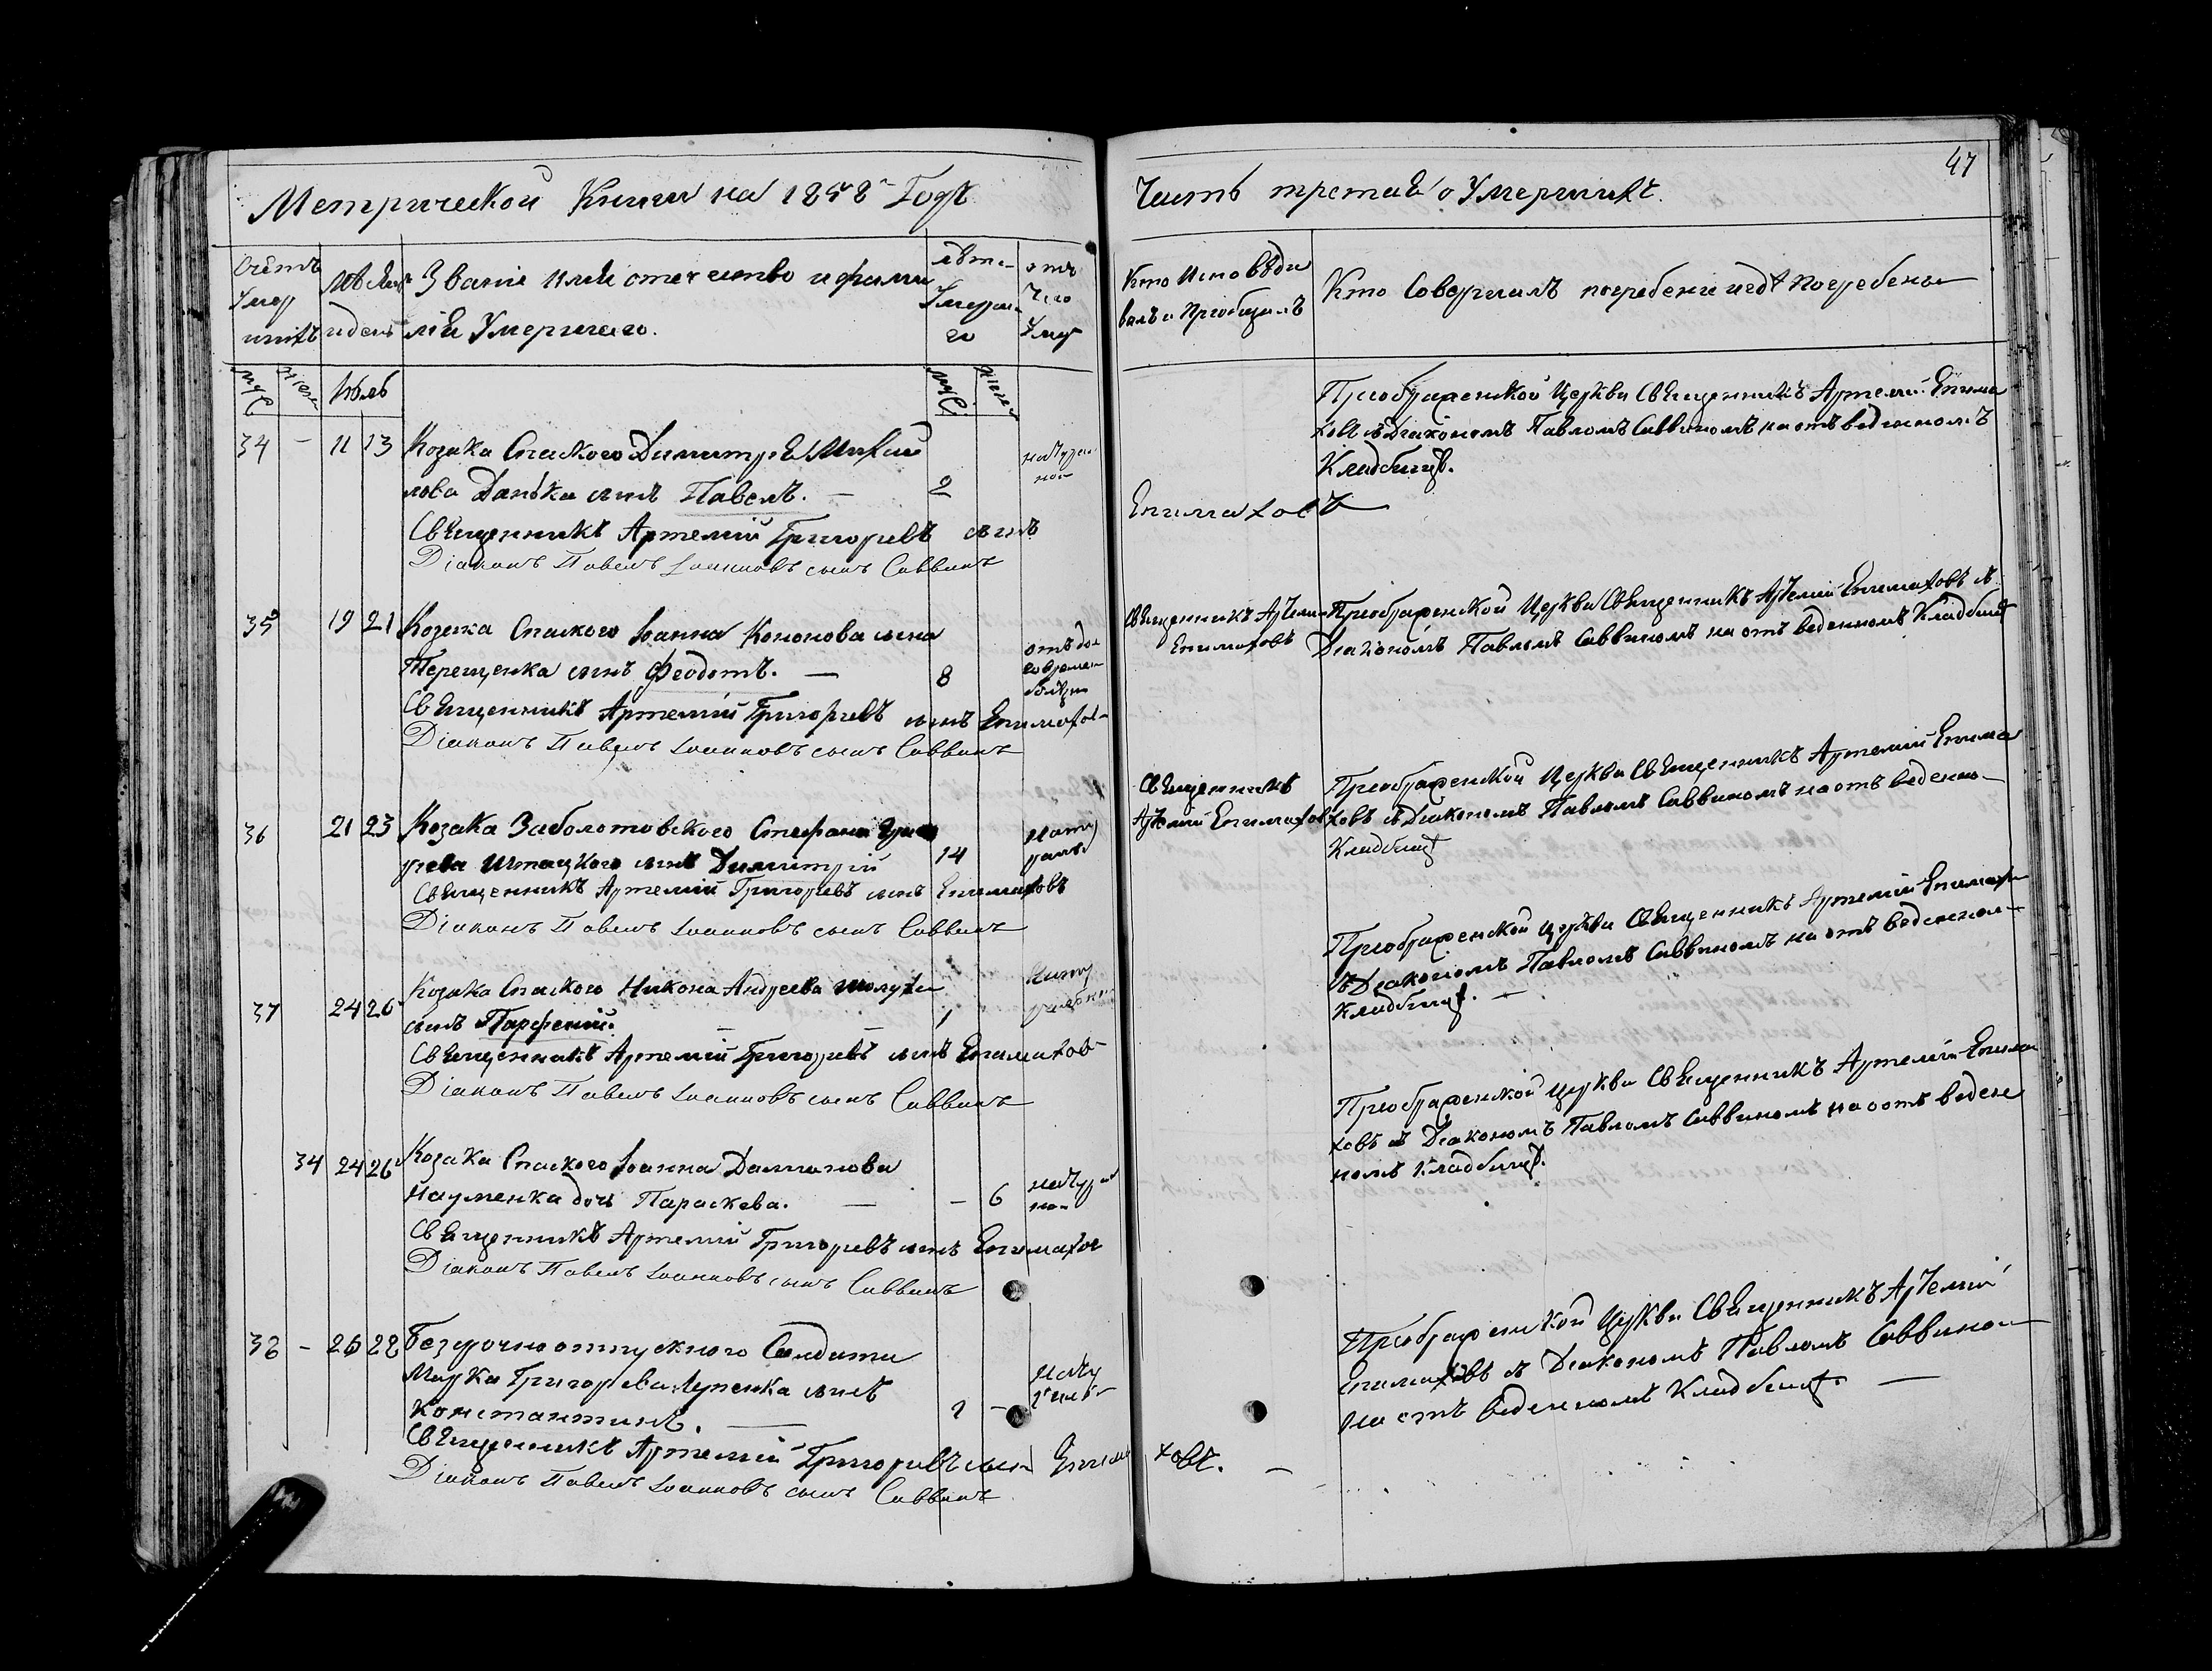 47
Метрической Книги на 1858 Годъ
Часть третья о Умершихъ.
Счетъ Умер шихъ
Мѣсяцъ и день
Званіе имя отечество и фами
лія Умершаго.
лѣта Умерша го
отъ чего Умер
Кто Исповѣды
валъ и Пріобщалъ
Кто Совершалъ погребеніе и гдѣ Погребены
муж женск
Юль
муж женск
34 - 11 13 Козака Спаского Димитрія Михай
лова Данька сынъ Павелъ. — 2 натураль
но
Священникъ Артемій Григорьевъ сынъ
Епимаховъ
Діаконъ Павелъ Іоанновъ сынъ Саввинъ
Преображенской Церкви Священникъ Артемій Епима
ховъ съ Діакономъ Павломъ Саввиномъ на отъведенномъ
Кладбищѣ.
35 19 21 Козака Спаского Іоанна Кононова сына
Терещенка сынъ Феодотъ. — 8
Священникъ Артемій Григорьевъ сынъ Епимахов
Діаконъ Павелъ Іоанновъ сынъ Саввинъ
Священникъ Артемій
Епимаховъ
Преображенской Церкви Священникъ Артемій Епимаховъ съ
Діакономъ Павломъ Саввиномъ на отъведенномъ Кладбищѣ
36 21 23 Козака Заболотовского Стефана
сынъ Димитрій 14 нату
раль
Священникъ Артемій Григорьевъ сынъ Епимаховъ
Діаконъ Павелъ Іоанновъ сынъ Саввинъ
Священникъ
Артемій Епимахов
Преображенской Церкви Священникъ Артемій Епима
ховъ съ Діакономъ Павломъ Саввиномъ на отъведенно
Кладбищѣ
37 24 26 Козака Спаского Никона Андреева
сынъ Парфеній. — 1 нату
рально
Священникъ Артемій Григорьевъ сынъ Епимахов
Діаконъ Павелъ Іоанновъ сынъ Саввинъ
Преображенской Церкви Священникъ Артемій Епимахо
съ Діакономъ Павломъ Саввиномъ на отъведенном
Кладбищѣ. —
34 24 26 Козака Спаского Іоанна Даміанова
Науменка дочь Параскева. — - 6 натура
но
Священникъ Артемій Григорьевъ сынъ Епимахов
Діаконъ Павелъ Іоанновъ сынъ Саввинъ
Преображенской Церкви Священникъ Артемій Епима
ховъ съ Діакономъ Павломъ Саввиномъ на отъведен
номъ Кладбищѣ.
38 - 26 28 Безсрочноотпускного Солдата
Марка Григорьева сынъ
Константинъ. — 1 - нату
раль
Священникъ Артемій Григорьевъ сынъ Епима ховъ. —
Діаконъ Павелъ Іоанновъ сынъ Саввинъ
Преображенской Церкви Священникъ Артемій
Епимаховъ съ Діакономъ Павломъ Саввином
на отъведенномъ Кладбищѣ. —